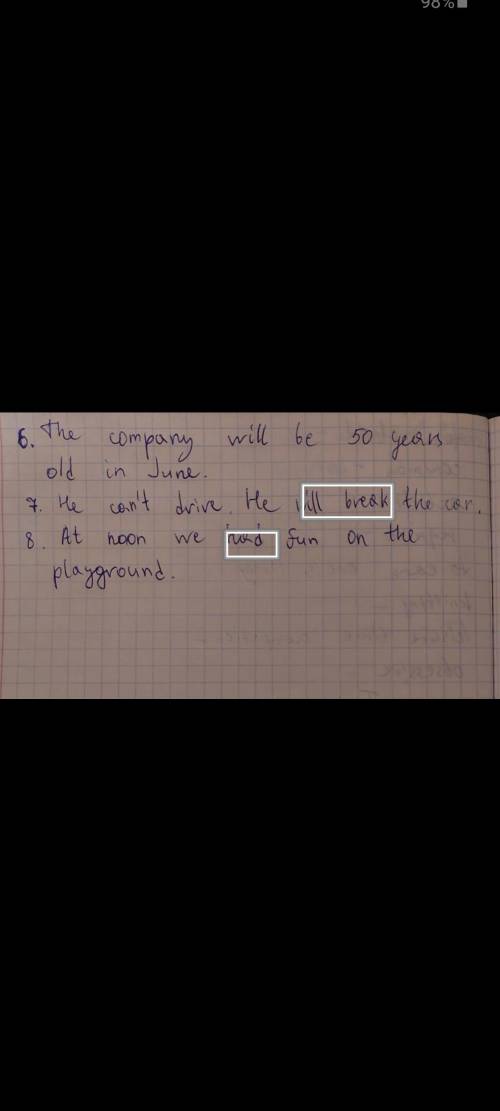 98%
6. The company will be 50 years
old in June.
7. He can't drive. He will break the car.
8. At noon we had fun on the
playground.